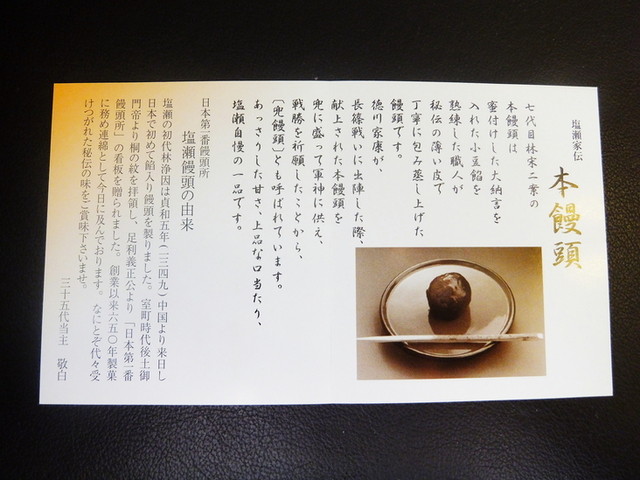 塩瀬家伝
本饅頭
七代目林宗二案の
本饅頭は、
蜜付けした大納言を
入れた小豆餡を
熟練した職人が
秘伝の薄い皮で
丁寧に包み蒸し上げた
饅頭です。
徳川家康が、
長篠戦いに出陣した際、
献上された本饅頭を
兜に盛って軍神に供え、
戦勝を祈願したことから、
〔兜饅頭〕とも呼ばれています。
あっさりした甘さ、上品な口当たり、
塩瀬自慢の一品です。
日本第一番饅頭所
塩瀬饅頭の由来
塩瀬の初代林浄因は貞和五年(一三四九)中国より来日し
日本で初めて餡入り饅頭を製りました。室町時代後土御
門帝より桐の紋を拝領し、足利義正公より「日本第一番
饅頭所」の看板を贈られました。創業以来六五〇年製菓
に務め連綿として今日に及んでおります。なにとぞ代々受
けつがれた秘伝の味をご賞味下さいませ。
三十五代当主 敬白